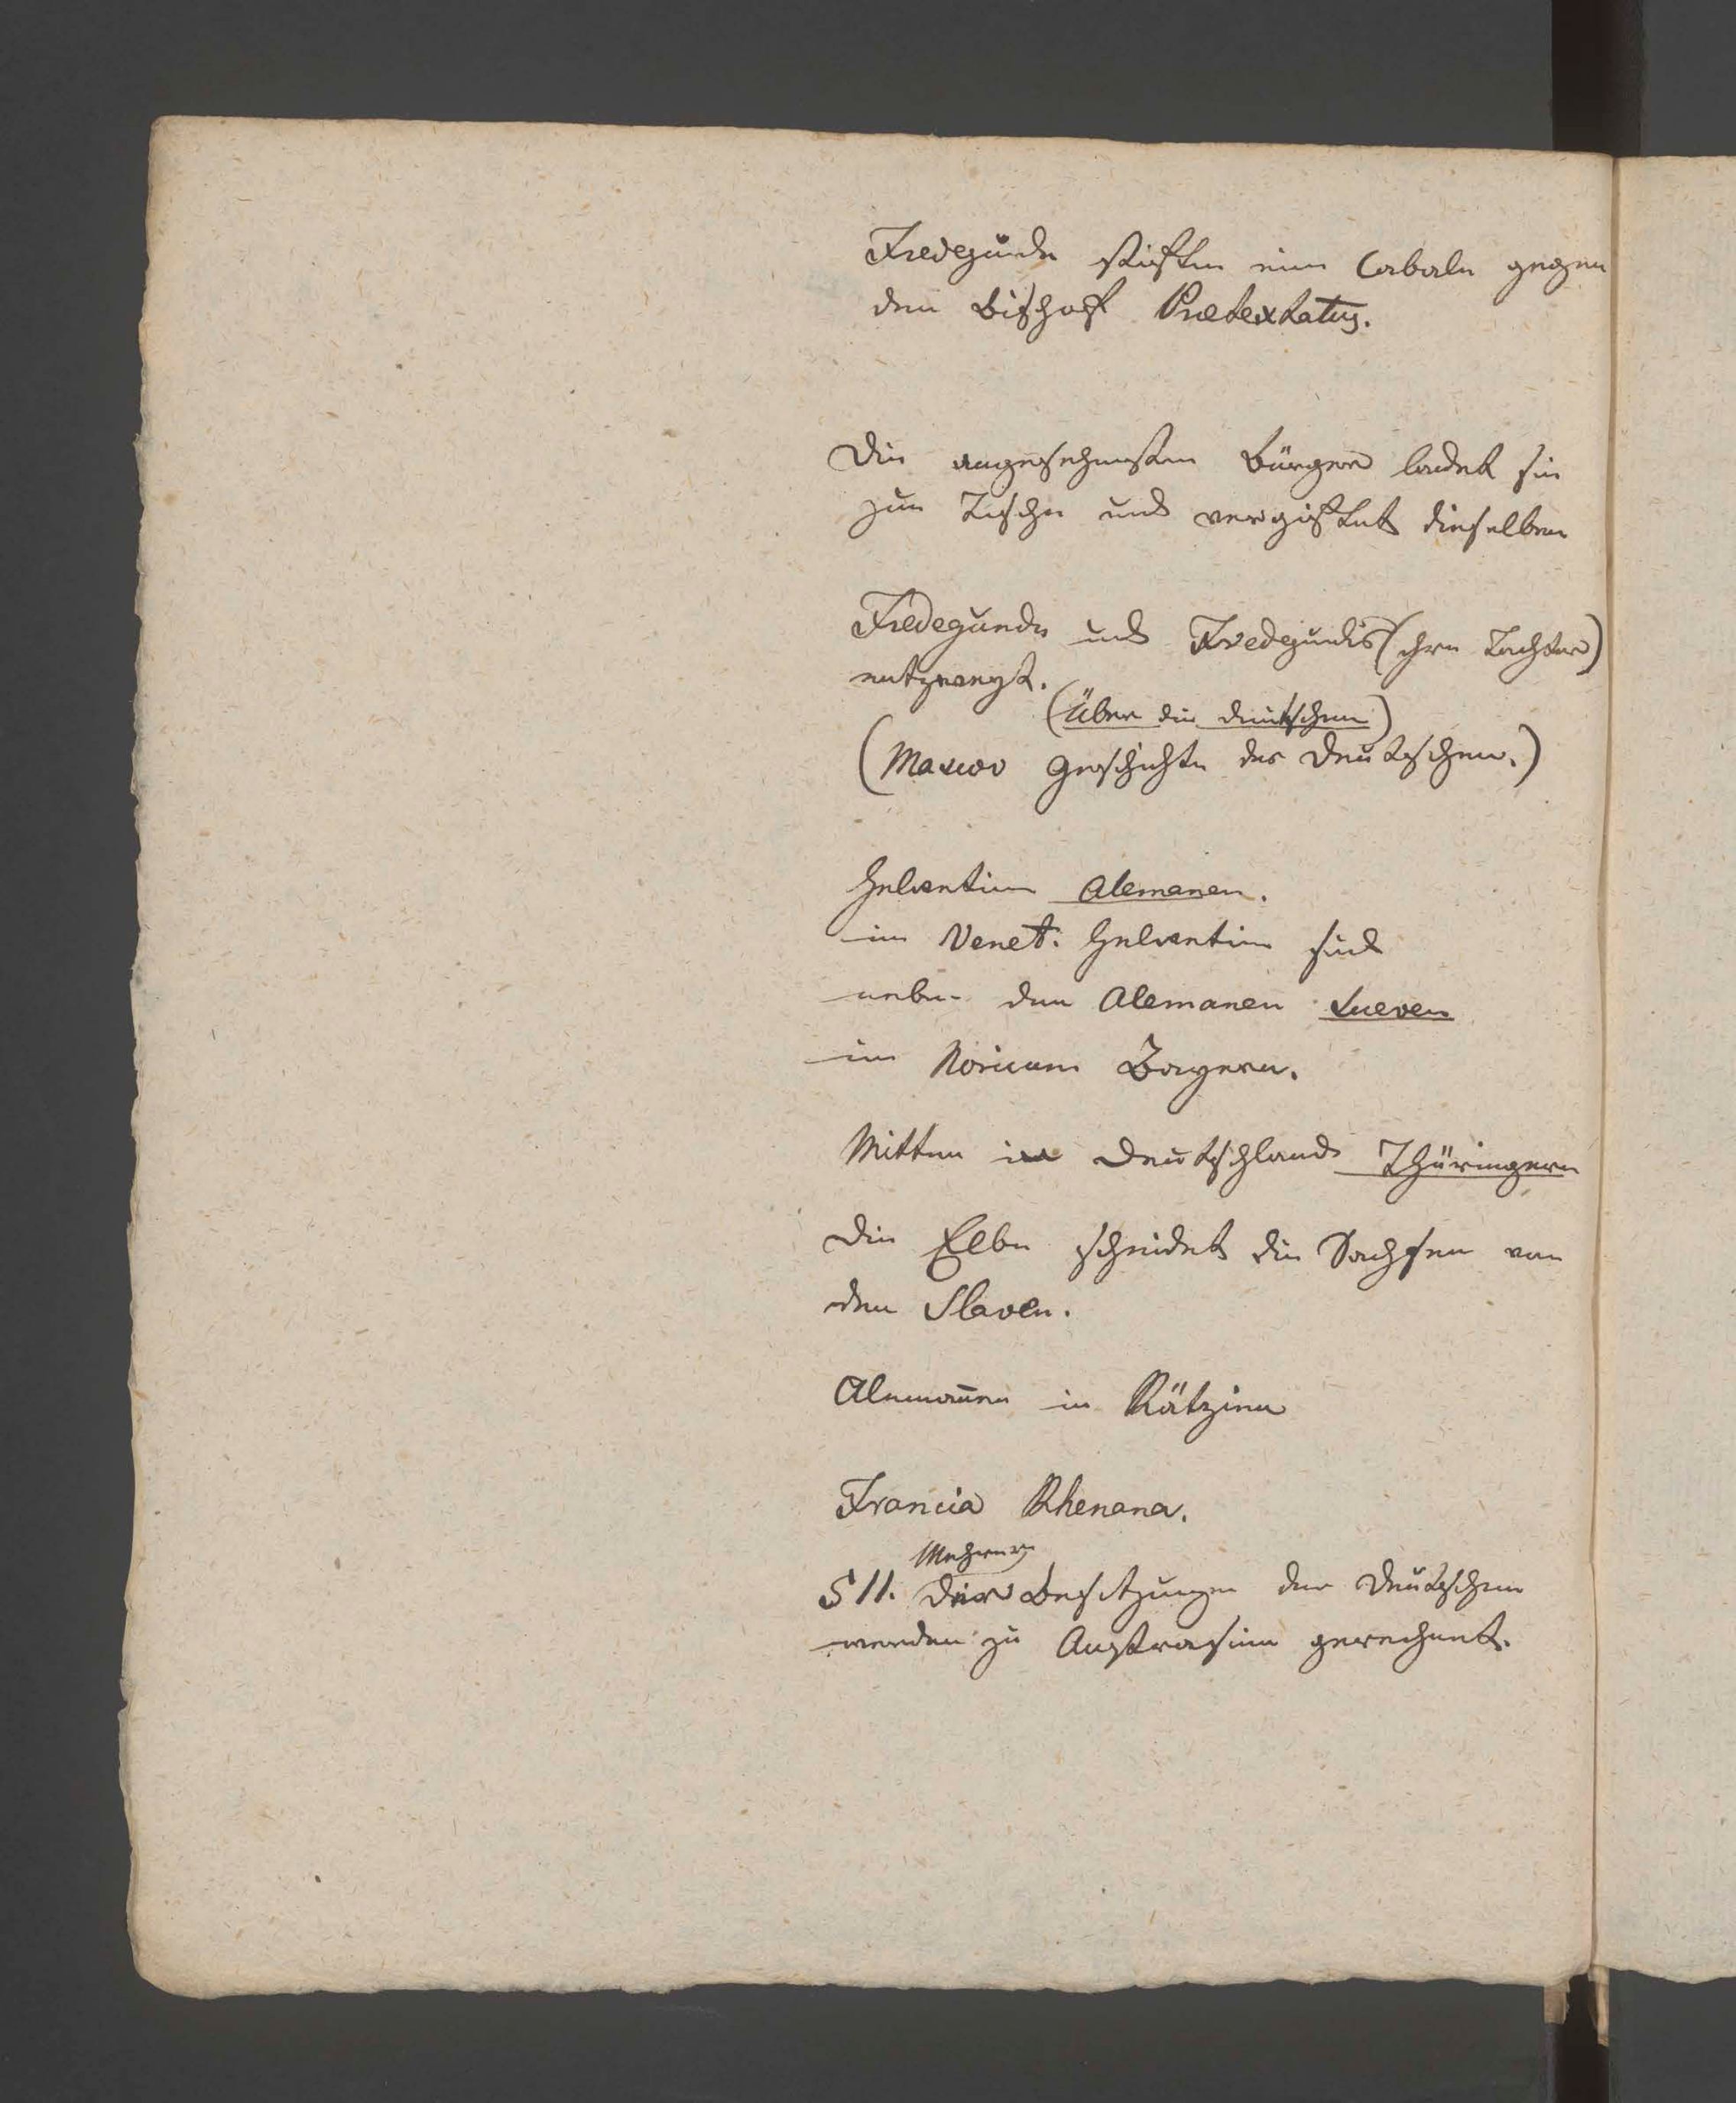 Fredegunde stiften eine Cabale gegen
den Bischoff Prætextatus.
Die angesehensten Bürger ladet sie
zum Tische und vergiftet dieselben
Fredegunde und Fredegundis (ihre Tochter)
entzweyt.
(Über die deutschen)
(Mascov Geschichte der Deutschen.)
Helvetien Alemanen.
im Venet. Helvetien sind
neben den Alemanen Sueven
im Noricum Bayern.
Mitten in Deutschland Thüringern
Die Elbe scheidet die Sachsen von
den Slaven.
Alemanen in Rätzien
Francia Rhenana.
Mehrere
§ 11. Die Besitzungen der Deutschen
werden zu Austrasien gerechnet.